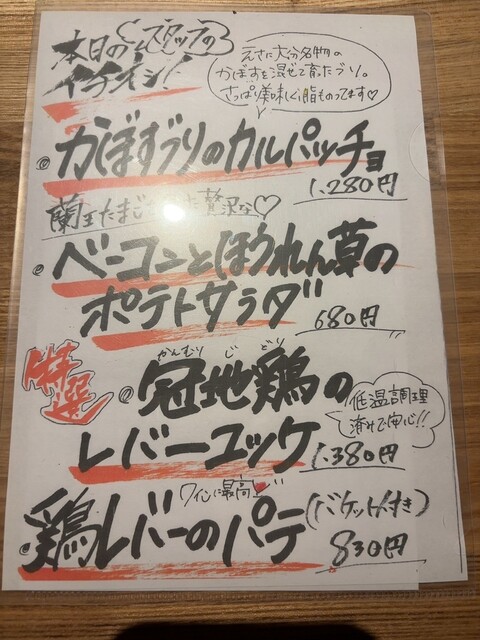 本日の スタッフの
イチオシ!
えさに大分名物の
かぼすを混ぜて育ったブリ。
さっぱり美味しく脂ものってます♡
かぼすブリのカルパッチョ
1.280円
蘭王たまご 贅沢な♡
ベーコンとほうれん草の
ポテトサラダ
680円
特選
かんむり じ どり
冠地鶏の
レバーユッケ
低温調理
済みで安心!!
1.380円
ワインに最高
鶏レバーのパテ(バケット付き)
830円